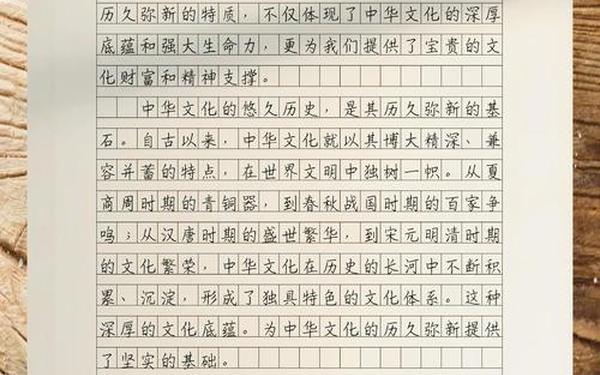 历久弥新的特质，不仅体现了中华文化的深厚
底蕴和强大生命力，更为我们提供了宝贵的文
化财富和精神支撑。
中华文化的悠久历史，是其历久弥新的基
石。自古以来，中华文化就以其博大精深、兼
容并蓄的特点，在世界文明中独树一帜。从夏
商周时期的青铜器，到春秋战国时期的百家争
鸣；从汉唐时期的盛世繁华，到宋元明清时期
的文化繁荣，中华文化在历史的长河中不断积
累、沉淀，形成了独具特色的文化体系。这种
深厚的文化底蕴。为中华文化的历久弥新提供
了坚实的基础。